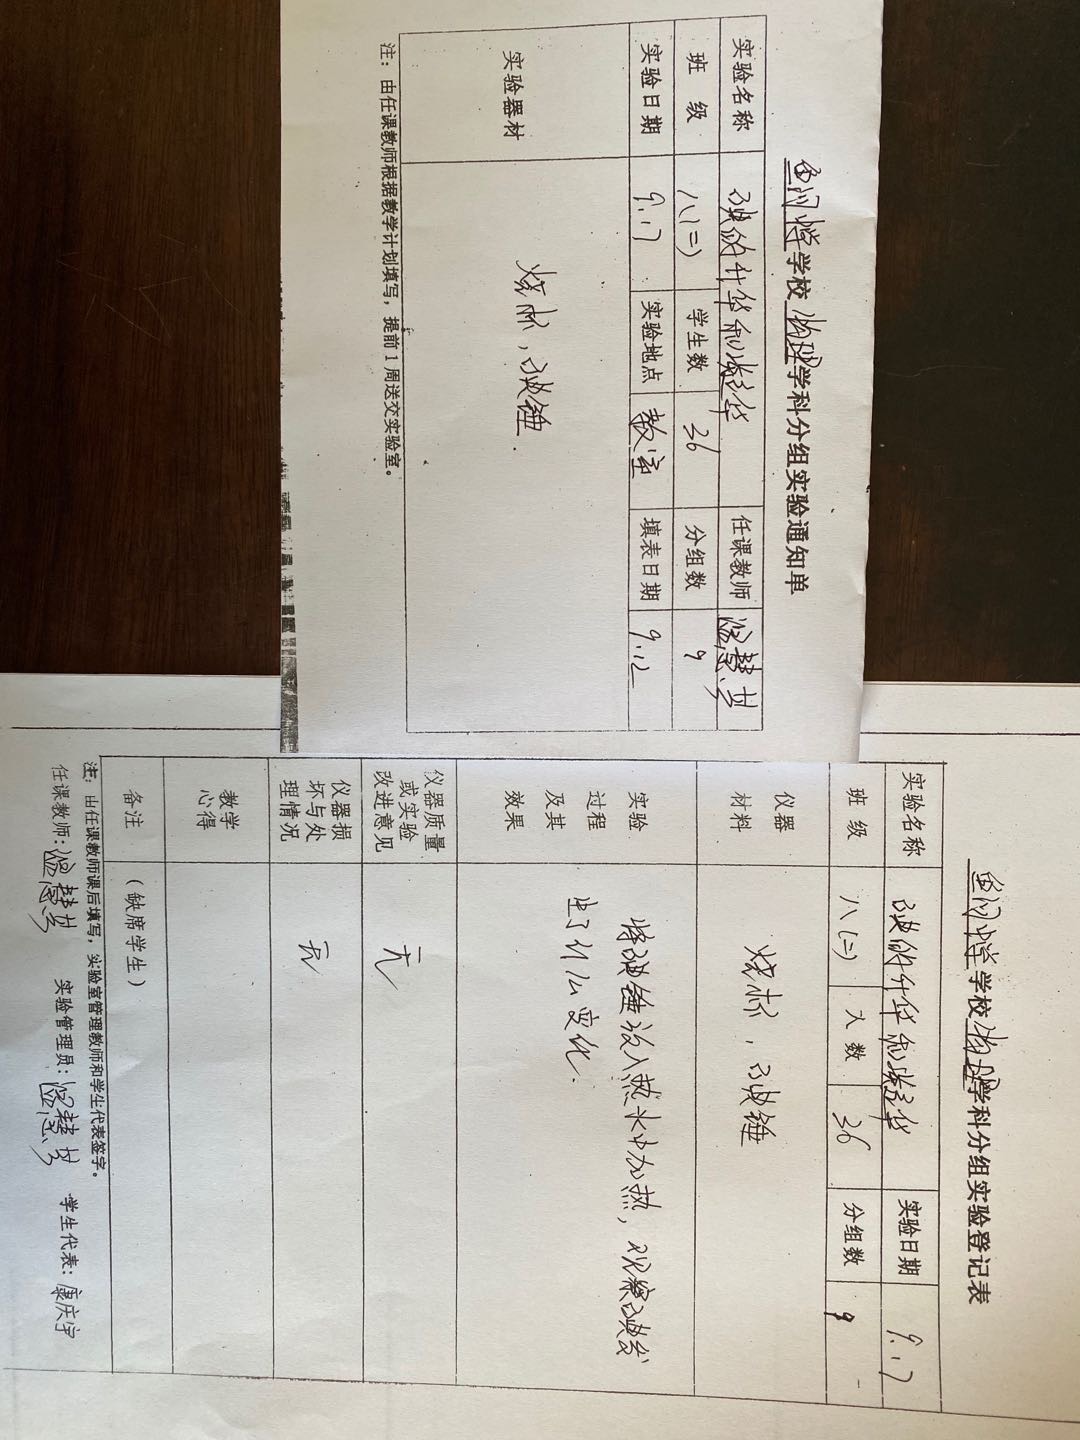 学校物理学科分组实验通知单
实验名称 碘的升华和凝华 任课教师
班 级 八(二) 学生数 36 分组数 9
实验日期 9.17 实验地点 教室 填表日期 9.12
实验器材 烧杯，碘锤.
注：由任课教师根据教学计划填写，提前1周送交实验室。
学校物理学科分组实验登记表
实验名称 碘的升华和凝华 实验日期 9.17
班 级 八(二) 人 数 36 分组数 9
仪器
材料
烧杯，碘锤
实验
过程
及其
效果
将碘锤放入热水中加热，观察碘发
生了什么变化.
仪器质量
或实验
改进意见
无
仪器损
坏与处
理情况
无
教学
心得
备注 （缺席学生）
注：由任课教师课后填写，实验室管理教师和学生代表签字。
任课教师： 实验管理员： 学生代表：康庆宇